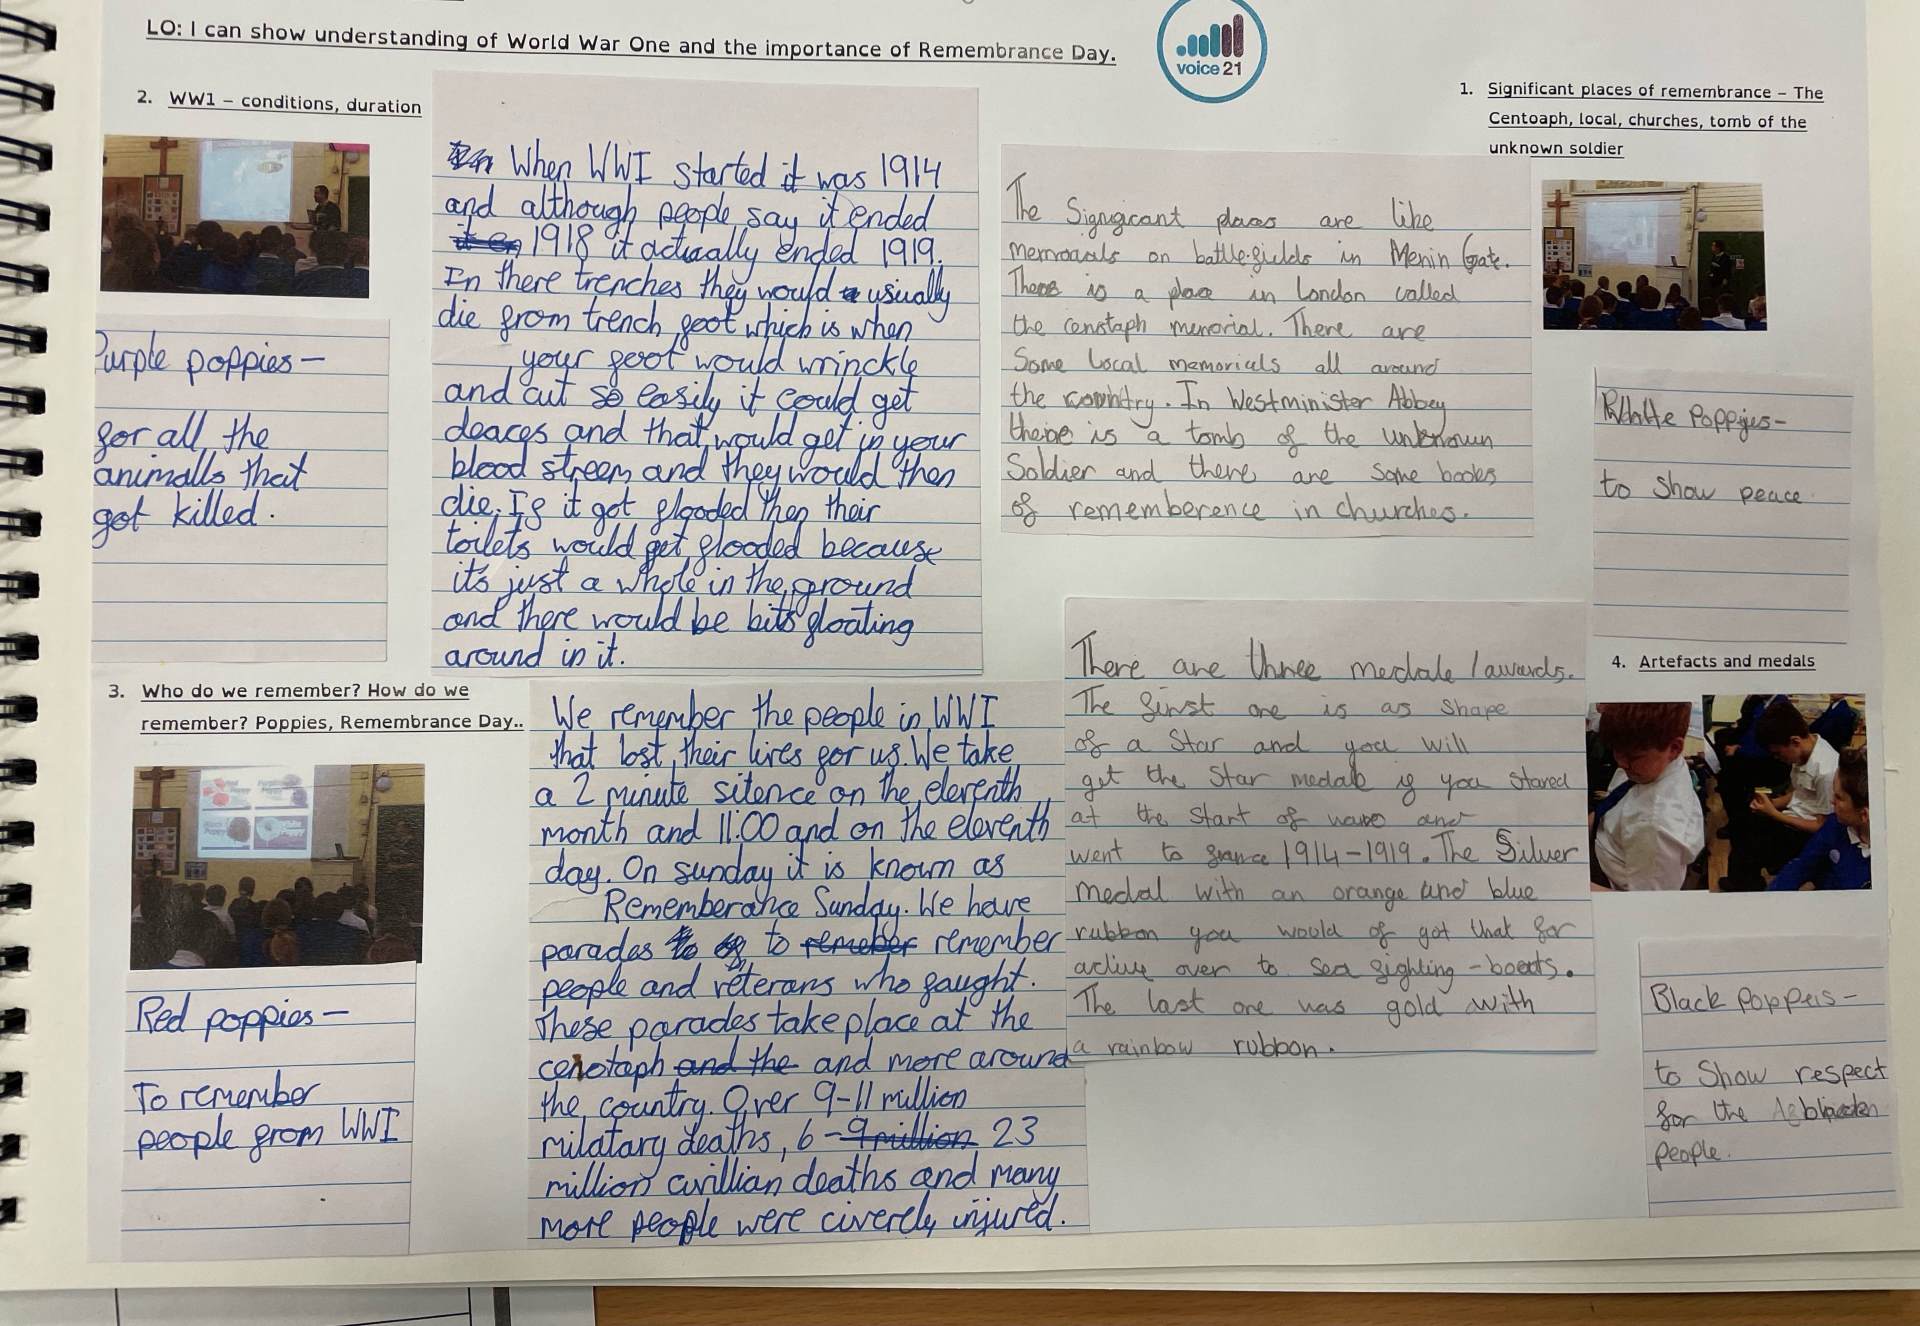 LO: I can show understanding of World War One and the importance of Remembrance Day.
voice 21
2. WW1 – conditions, duration
When WWI started it was 1914
and although people say it ended
1918 it actually ended 1919.
In there trenches they would usually
die from trench foot which is when
your foot would wrinckle
and cut so easily it could get
deaces and that would get in your
blood streem and they would then
die. If it got flooded then their
toilets would get flooded because
it's just a whole in the ground
and there would be bits floating
around in it.
Purple poppies –
for all the
animalls that
got killed.
1. Significant places of remembrance – The
Centoaph, local, churches, tomb of the
unknown soldier
The Signigicant places are like
memroals on battle-fields in Menin Gate.
There is a place in London called
the censtaph memorial. There are
Some local memorials all around
the country. In Westminister Abbey
there is a tomb of the unknown
Soldier and there are some books
of rememberence in churches.
Poppyes-
to show peace
3. Who do we remember? How do we
remember? Poppies, Remembrance Day..
We remember the people in WWI
that lost their lives for us. We take
a 2 minute silence on the eleventh
month and 11:00 and on the eleventh
day. On sunday it is known as
Rememberance Sunday. We have
parades to remember
people and veterans who faught.
These parades take place at the
cenotaph and the and more around
the country. Over 9–11 million
milatary deaths, 6 – 9 million 23
million civillian deaths and many
more people were civerely injured.
Red poppies –
To remember
people from WWI
There are three medals / awards.
The first one is as shape
of a Star and you will
get the Star medal if you stared
at the start of and
went to france 1914–1919. The Silver
medal with an orange and blue
rubbon you would of got that for
active over to sea fighting – boats.
The last one was gold with
a rainbow rubbon.
4. Artefacts and medals
Black poppeis –
to Show respect
for the
people.